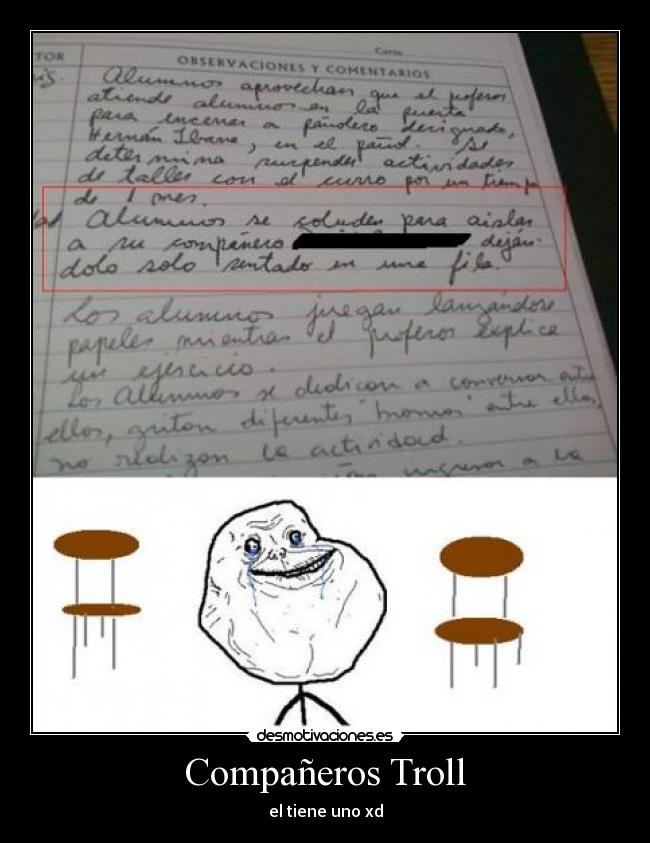 Curso
TOR
OBSERVACIONES Y COMENTARIOS
Alumnos aprovechan que el profesor
atiende alumnos en la puerta
para encerrar a pañolero designado,
Hernán Ibarra, en el pañol. Se
determina suspender actividades
de taller con el curso por un tiempo
de 1 mes.
Alumnos se coluden para aislar
a su compañero deján-
dolo solo sentado en una fila.
Los alumnos juegan lanzándose
papeles mientras el profesor explica
un ejercicio.
Los Alumnos se dedican a conversar entre
ellos, gritan diferentes "bromas" entre ellos,
no realizan la actividad.
ingresar a la
desmotivaciones.es
Compañeros Troll
el tiene uno xd